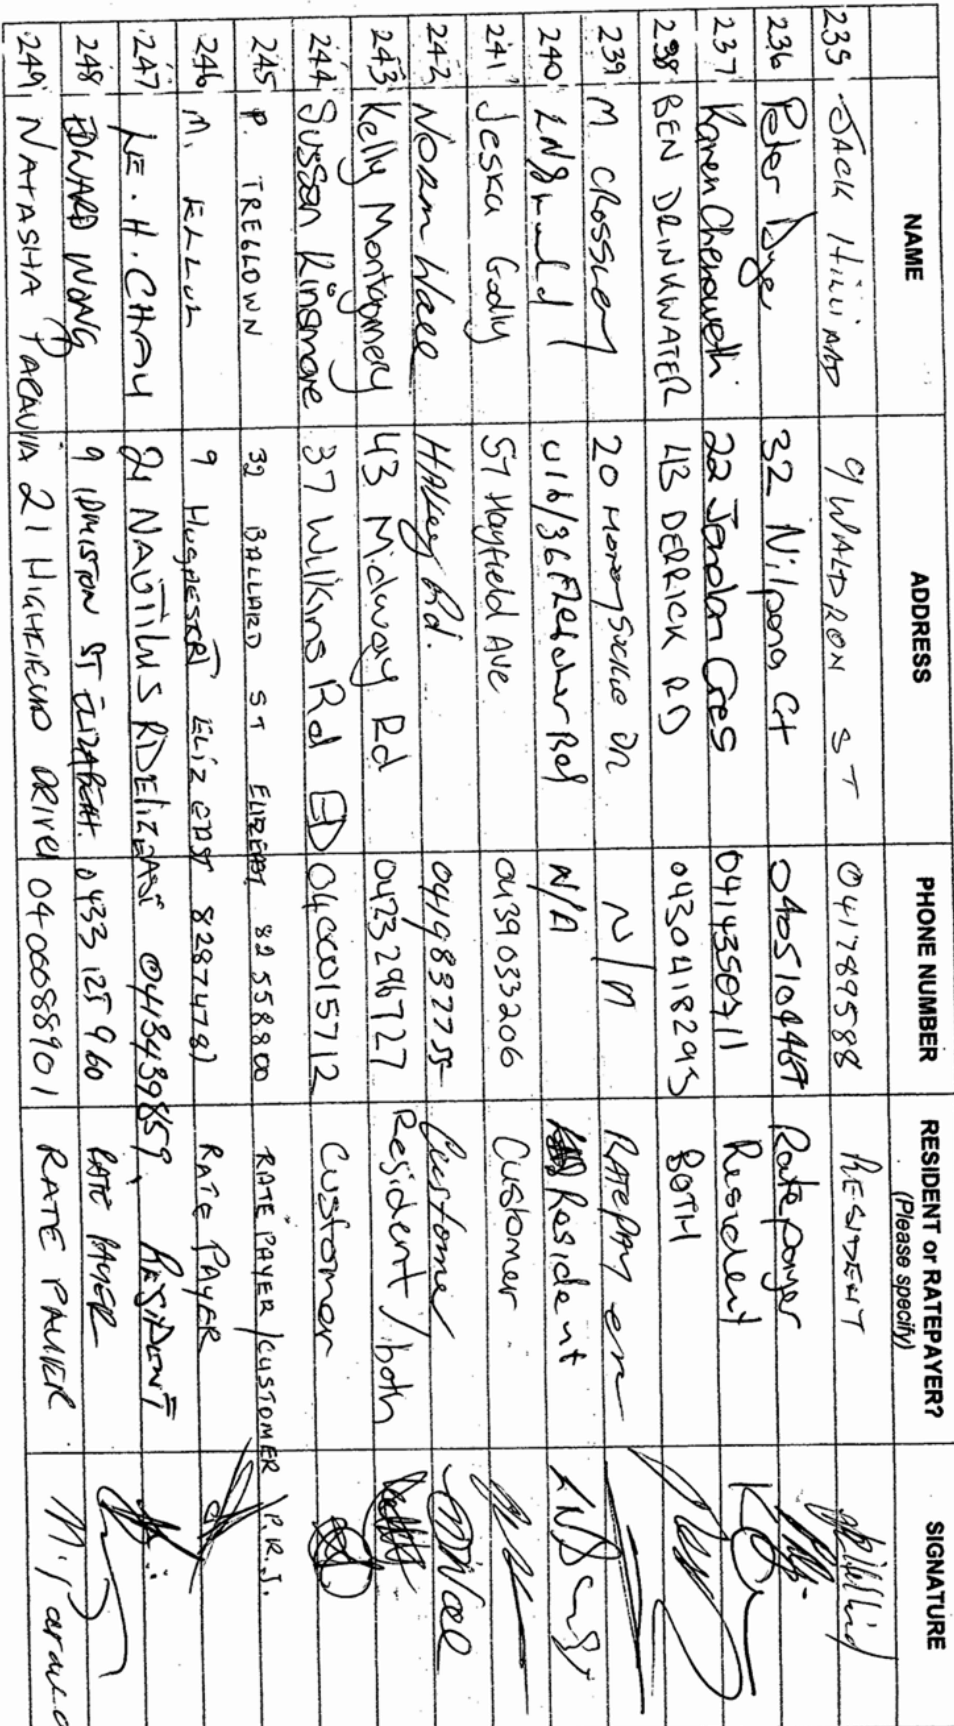 NAME ADDRESS PHONE NUMBER RESIDENT or RATEPAYER? (Please specify) SIGNATURE
235 JACK HILLIARD 9 WALDRON ST 041789588 RESIDENT
236 Peter Dyer 32 Nilpena Ct Ratepayer
237 Karen Chenoweth 22 Jordan Cres Resident
238 BEN DRINKWATER 43 DERRICK RD 0430418295 BOTH
239 M. 20 Dr N/A RATEPAY er
240 U16/36 Rd N/A Resident
241 Jeska Godly 57 Hayfield AVE 0439033206 Customer
242 Norm Wall Rd. 0419837755 Customer
243 Kelly Montgomery 43 Midway Rd 0423296727 Resident/both
244 Sussan Kinsmore 37 Wilkins Rd ED 0400015712 Customer
245 P. TRELOWN 32 BALLARD ST ELIZEAST 82558800 RATE PAYER/CUSTOMER P.R.J.
246 M. 9 ELIZ EAST 82874781 RATE PAYER
247 LE. H. CHAU 24 NAUTILUS RD ELIZ EAST 0413439859 RESIDENT
248 EDWARD WONG 9 ST 0433 125 960 RATE PAYER
249 NATASHA 21 DRIVE 0400088901 RATE PAYER